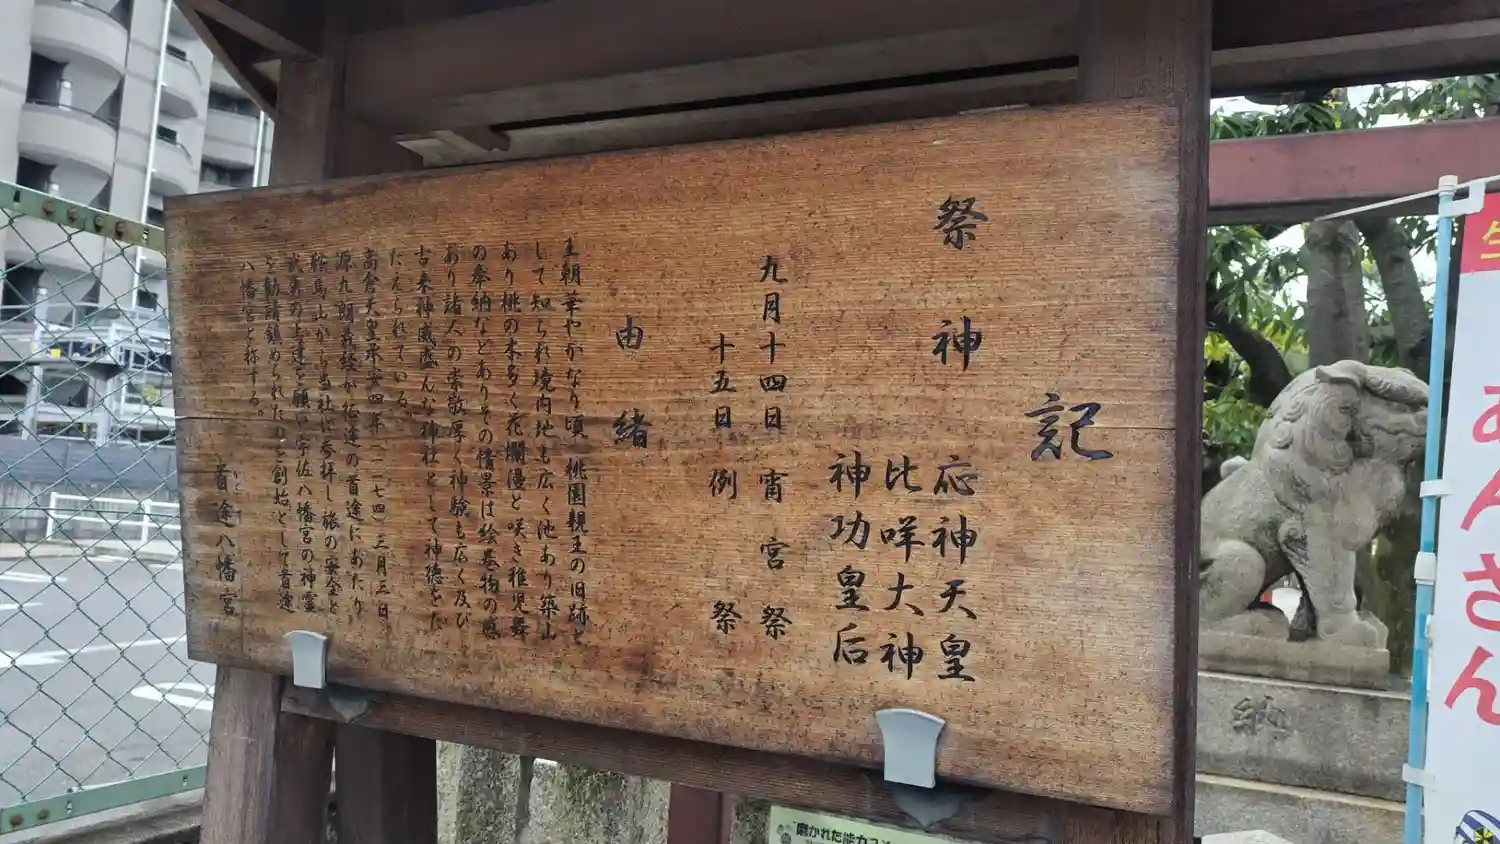 記
祭神 応神天皇
比咩大神
神功皇后
九月十四日 宵宮祭
十五日 例祭
由緒
王朝華やかなり頃 桃園親王の旧跡と
して知られ境内地も広く池あり築山
あり桃の木多く花爛漫と咲き稚児舞
の奉納などありその情景は絵巻物の感
あり諸人の崇敬厚く神験も広く及び
古来神威盛んな神社として神徳をた
たえられている。
高倉天皇承安四年(一一七四)三月三日
源九朗義経が奥途の首途にあたり
鞍馬山から当社に参拝し旅の安全と
武勇の上達を願い宇佐八幡宮の神霊
を勧請鎮められたのを創始として首途
八幡宮と称する。
首途八幡宮
かどで
納
生
あんさん
磨かれた能力